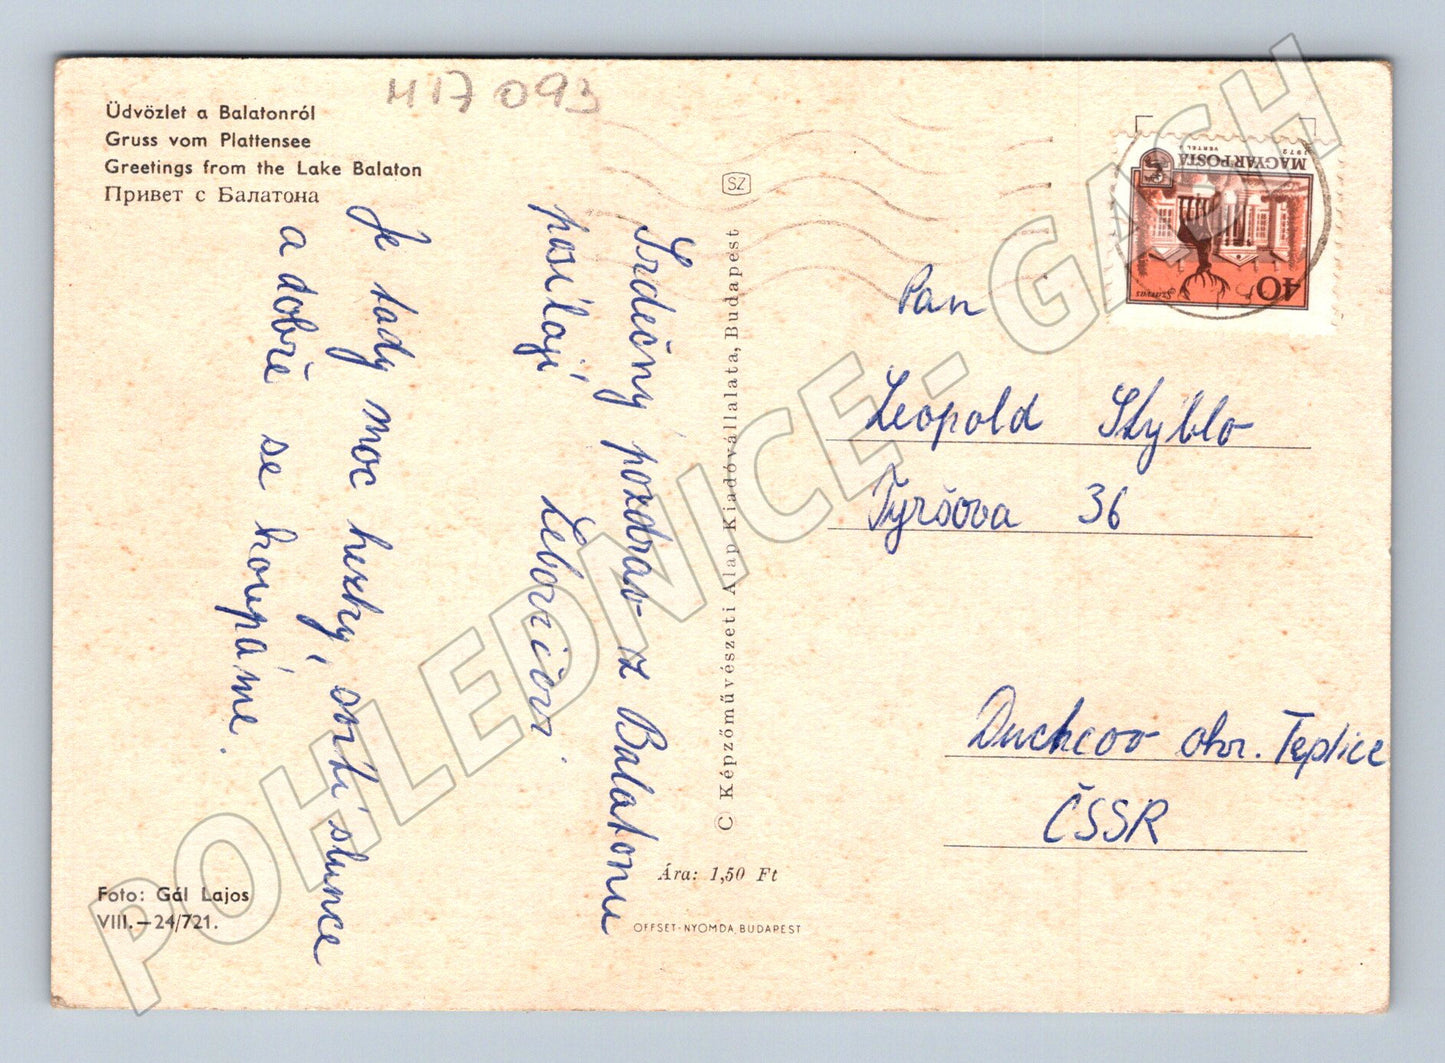 M17 093
Üdvözlet a Balatonról
Gruss vom Plattensee
Greetings from the Lake Balaton
Привет с Балатона
Srdečný pozdrav z Balatonu
posílají Lebdušovi.
Je tady moc hezky, svítí slunce
a dobře se koupáme.
SZ
© Képzőművészeti Alap Kiadóvállalata, Budapest
MAGYAR POSTA
1972
VÉRTEL
Szarvas
40
Pan
Leopold Styblo
Tyršova 36
Duchcov okr. Teplice
ČSSR
Foto: Gál Lajos
VIII.—24/721.
Ára: 1,50 Ft
OFFSET-NYOMDA, BUDAPEST
POHLEDNICE - GACH